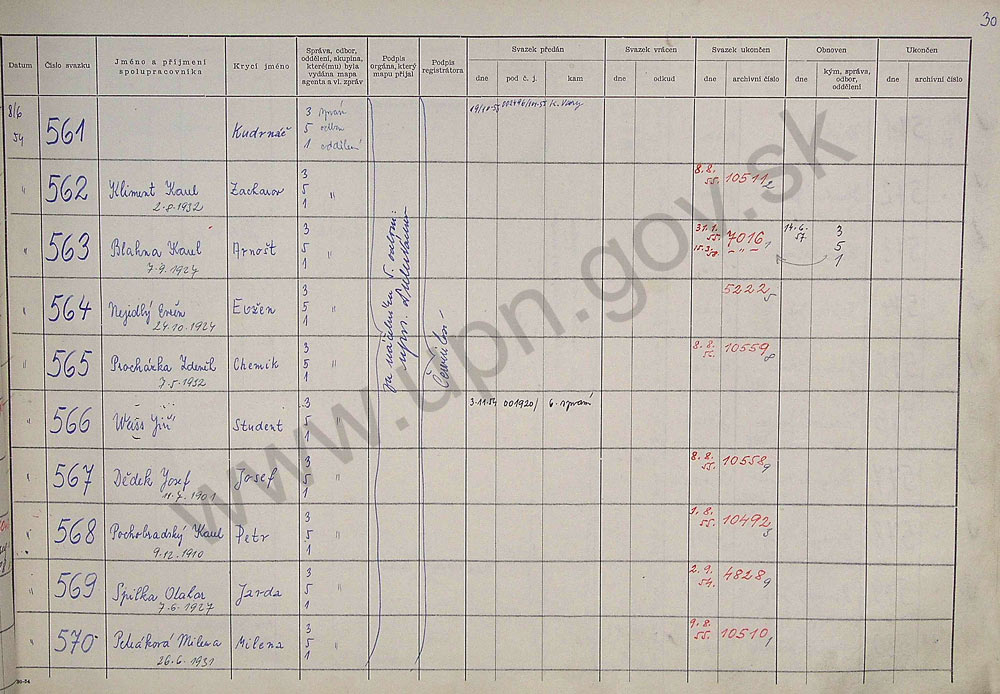 30
Datum
Číslo svazku
Jméno a příjmení
spolupracovníka
Krycí jméno
Správa, odbor,
oddělení, skupina,
které(mu) byla
vydána mapa
agenta a vl. zpráv
Podpis
orgána, který
mapu přijal
Podpis
registrátora
Svazek předán
dne
pod č. j.
kam
Svazek vrácen
dne
odkud
Svazek ukončen
dne
archivní číslo
Obnoven
dne
kým, správa,
odbor,
oddělení
Ukončen
dne
archivní číslo
8/6
54
561
Kudrnáč
3 správa
5 odbor
1 oddělení
19/10-55
K. Vary
" 562 Kliment Karel
2.8.1932
Zacharov
3
5 "
1
8.8.
55.
10511 2
" 563 Blahna Karel
7.9.1927
Arnošt
3
5 "
1
31.1.
55.
7016 1
14.6.
57.
3
5
1
" 564 Nejidlý Evžen
24.10.1924
Evžen
3
5 "
1
5222 5
" 565 Procházka Zdeněk
7.5.1932
Chemik
3
5 "
1
8.8.
10559 8
" 566 Weiss Jiří
Student
3
5 "
1
3.11.54 001920/ 6. správa
" 567 Dědek Josef
11.7.1901
Josef
3
5 "
1
8.8.
55.
10558 9
" 568 Pochobradský Karel
9.12.1910
Petr
3
5 "
1
1.8.
55.
10492 5
" 569 Spilka Otakar
7.6.1927
Jarda
3
5 "
1
2.9.
54.
4828 9
" 570 Milena
26.6.1931
Milena
3
5 "
1
9.8.
55.
10510 1
za náčelníka 5. odboru:
www.upn.gov.sk